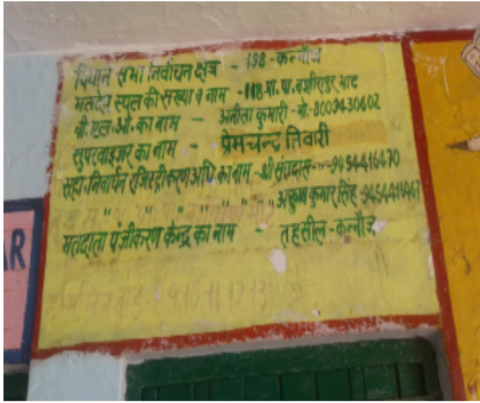 विधान सभा निर्वाचन क्षेत्र - 198 - कन्नौज
मतदेय स्थल की संख्या व नाम - 118 प्रा. पा. वशीरापुर भाट
बी. एल. ओ. का नाम - अनीता कुमारी - मो.- 8009430602
सुपरवाइजर का नाम - प्रेमचन्द्र तिवारी
सहा. निर्वाचन रजिस्ट्रीकरण अधि का नाम - श्री संतदास - 9454416470
" " " " " " अरुण कुमार सिंह - 9454416467
मतदाता पंजीकरण केन्द्र का नाम - तहसील - कन्नौज
AR